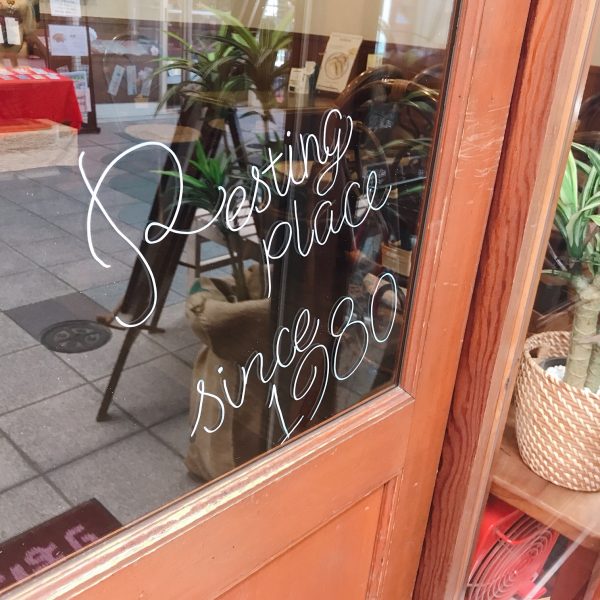 Resting
place
since
1980